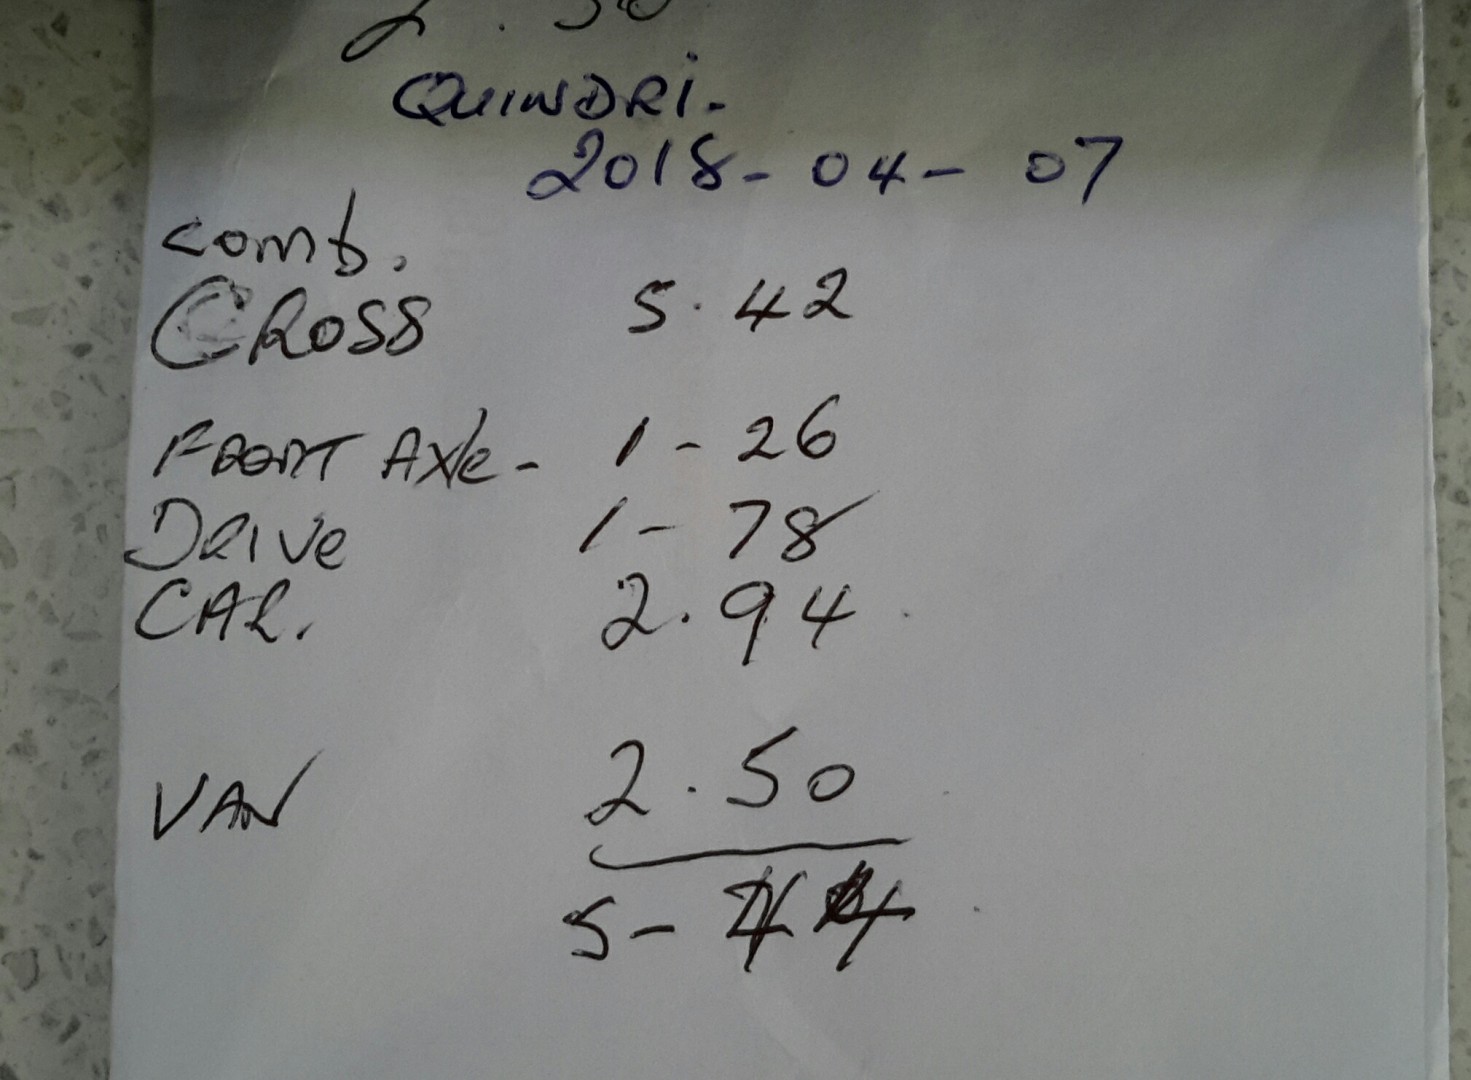 2.50
QUINDRI-
2018-04-07
comb.
GROSS 5.42
FRONT Axle - 1-26
DRIVe 1-78
CAR. 2.94
VAN 2.50
5-44